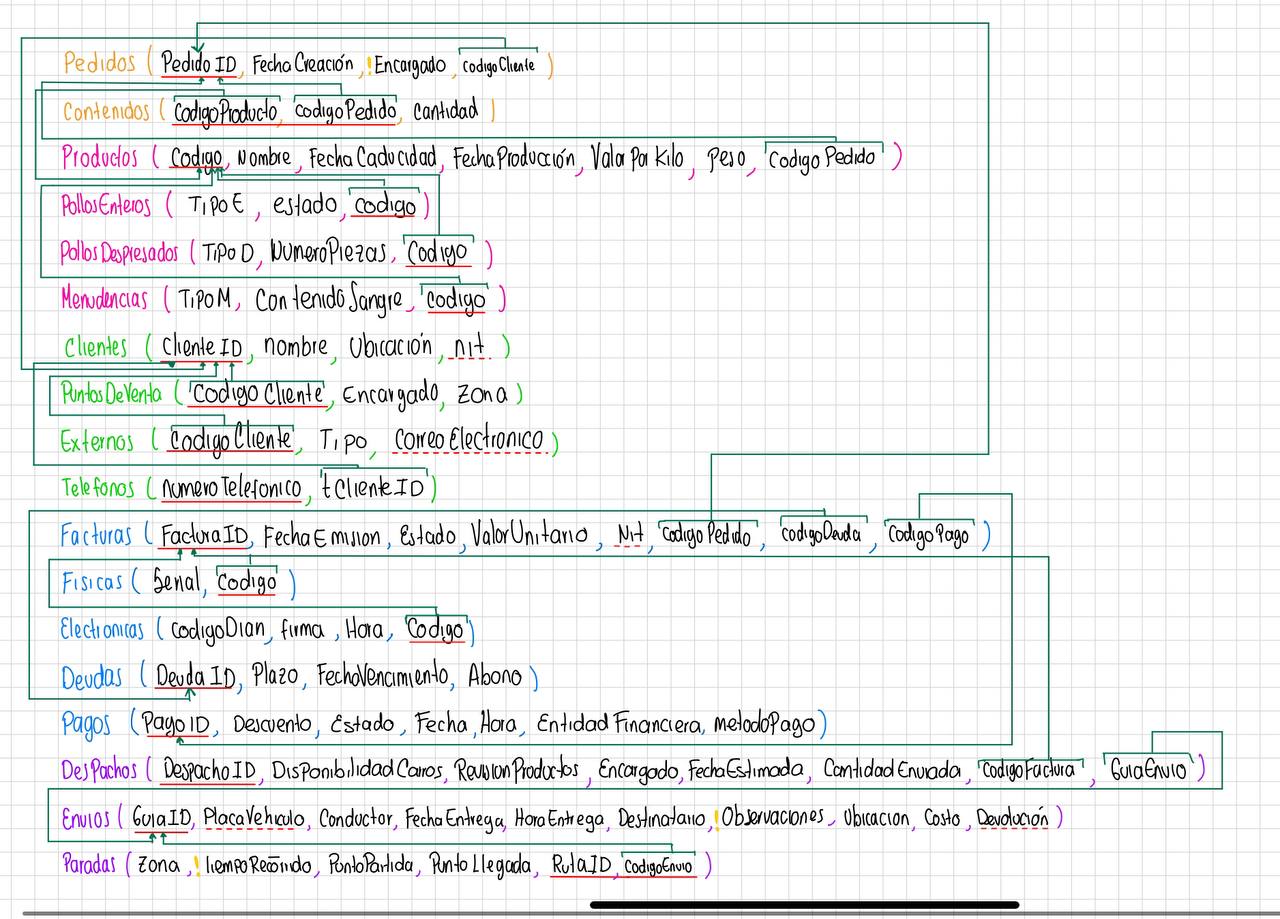 Pedidos ( Pedido ID, FechaCreación, ! Encargado, codigoCliente )
Contenidos ( CodigoProducto, codigoPedido, Cantidad )
Productos ( Codigo, Nombre, FechaCaducidad, FechaProducción, ValorPorKilo, Peso, Codigo Pedido )
PollosEnteros ( TipoE, estado, codigo )
PollosDespresados ( TipoD, NumeroPiezas, Codigo )
Menudencias ( TipoM, ContenidoSangre, Codigo )
Clientes ( Cliente ID, nombre, Ubicación, nit )
PuntosDeVenta ( Codigo Cliente, Encargado, Zona )
Externos ( CodigoCliente, Tipo, CorreoElectronico )
Telefonos ( numeroTelefonico, tClienteID )
Facturas ( FacturaID, FechaEmision, Estado, ValorUnitario, Nit, codigo Pedido, codigoDeuda, Codigo Pago )
Fisicas ( Serial, Codigo )
Electronicas ( codigoDian, firma, Hora, Codigo )
Deudas ( Deuda ID, Plazo, FechaVencimiento, Abono )
Pagos ( Pago ID, Descuento, Estado, Fecha, Hora, Entidad Financiera, metodoPago )
Despachos ( Despacho ID, DisponibilidadCarros, RevisionProductos, Encargado, FechaEstimada, CantidadEnviada, CodigoFactura, GuiaEnvio )
Envios ( GuiaID, PlacaVehiculo, Conductor, FechaEntrega, HoraEntrega, Destinatario, ! Observaciones, Ubicacion, Costo, Devolución )
Paradas ( Zona, ! tiempoRecorrido, PuntoPartida, Punto Llegada, RutaID, CodigoEnvio )